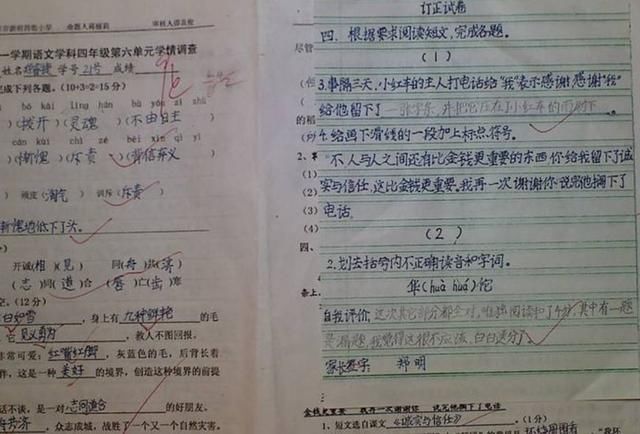 一学期语文学科四年级第六单元学情调查
学号 21号 成绩
完成下列各题。（10+3+2=15分）
bō kāi líng hún bù yóu zì zhǔ
（拨开）（灵魂）（不由自主）
cán kuì chì zé bèi xìn qì yì
（惭愧）（斥责）（背信弃义）
顽皮（淘气） 训斥（斥责）
惭愧地低下了头。
开诚（相）（见） 同（舟）共（济）
（志）同（道）合 （唇）亡（齿）寒
（12分）
白如雪，身上有 九种鲜艳 的毛
它 见义勇为，救人不图回报。
非常可爱：红嘴红脚，灰蓝色的毛，后背长着
件，这是一种 美好 的境界，创造这种境界的前提
话不谈，是一对 志同道合 的好朋友。
众志成城，战胜了一个又一个自然灾害。
订正试卷
四、根据要求阅读短文，完成各题。
（1）
3.事隔三天，小红车的主人打电话给“我”表示感谢，感谢“我”
给他留下了一张字条，并把它压在了小红车的雨刷下
4.给画下滑线的一段加上标点符号。
“不，人与人之间还有比金钱更重要的东西，你给我留下了诚
实与信任，这比金钱更重要。我再一次谢谢你。”说完他搁下了
电话。
（2）
2.划去括号内不正确读音和字词。
华（huà huá）佗
自我评价：这次其它部分都全对，唯独阅读扣了4分，其中有一题
是漏题，我觉得这很不应该，白白丢分了。
家长签字： 郑明
金钱更重要 我再一次谢谢你 说完他搁下了电话
1、短文选自课文《诚实与信任》。（1分）